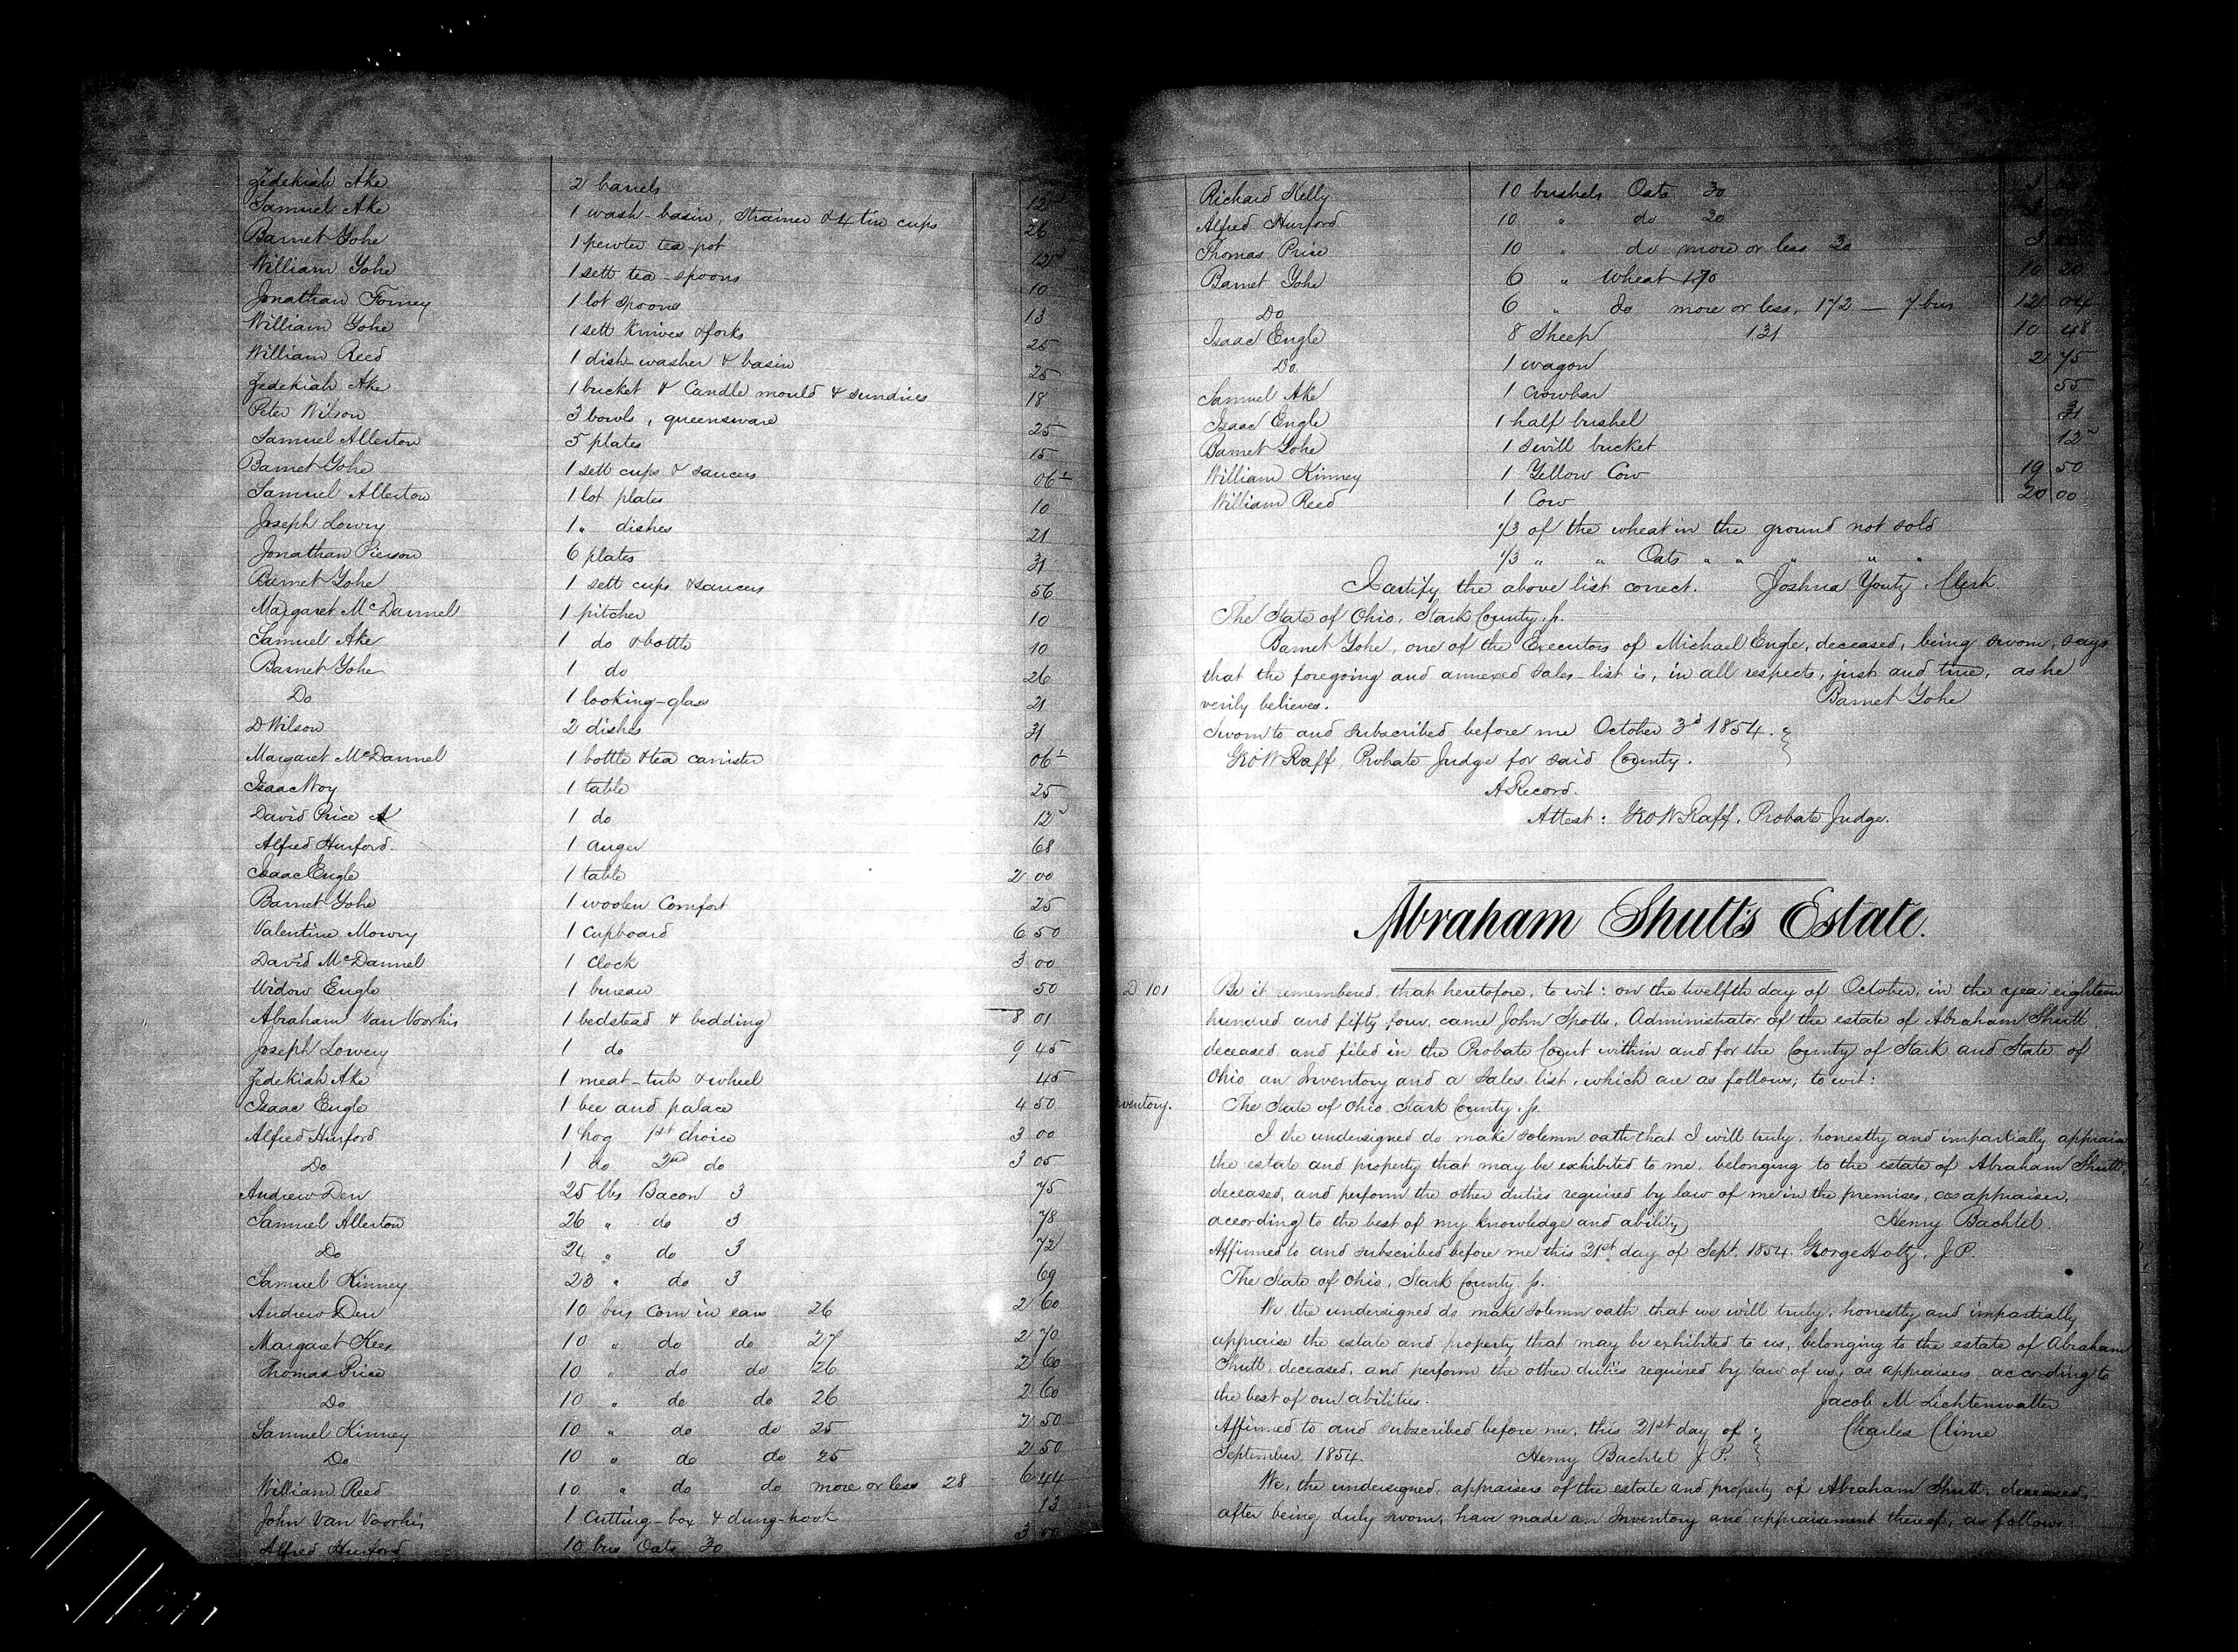 Zedekiah Ake 2 barrels 12½
Samuel Ake 1 wash-basin, strainer & 4 tin cups 26
Barnet Yohe 1 pewter tea-pot 12½
William Yohe 1 sett tea-spoons 10
Jonathan Forney 1 lot spoons 13
William Yohe 1 sett Knives & forks 25
William Reed 1 dish-washer & basin 25
Zedekiah Ake 1 bucket & Candle mould & sundries 18
Peter Wilson 3 bowls, queensware 25
Samuel Allerton 5 plates 15
Barnet Yohe 1 sett cups & saucers 06¼
Samuel Allerton 1 lot plates 10
Joseph Lowry 1 " dishes 21
Jonathan Pierson 6 plates 31
Barnet Yohe 1 sett cups & saucers 56
Margaret McDannel 1 pitcher 10
Samuel Ake 1 do & bottle 10
Barnet Yohe 1 do 26
Do 1 looking-glass 21
D Wilson 2 dishes 31
Margaret McDannel 1 bottle & tea canister 06¼
Isaac Noy 1 table 25
David Price 1 do 12½
Alfred Hurford 1 auger 68
Isaac Engle 1 table 2 00
Barnet Yohe 1 woolen Comfort 25
Valentine Mowry 1 Cupboard 6 50
David McDannel 1 Clock 3 00
Widow Engle 1 bureau 50
Abraham Van Voorhis 1 bedstead & bedding 8 01
Joseph Lowery 1 do 9 45
Zedekiah Ake 1 meat-tub & wheel 45
Isaac Engle 1 bee and palace 4 50
Alfred Hurford 1 hog 1st choice 3 00
Do 1 do 2nd do 3 05
Andrew Derr 25 lbs Bacon 3 75
Samuel Allerton 26 " do 3 78
Do 24 " do 3 72
Samuel Kinney 23 " do 3 69
Andrew Derr 10 bus Corn in ears 26 2 60
Margaret Kees 10 " do do 27 2 70
Thomas Price 10 " do do 26 2 60
Do 10 " do do 26 2 60
Samuel Kinney 10 " do do 25 2 50
Do 10 " do do 25 2 50
William Reed 10 " do do more or less 28 6 44
John Van Voorhis 1 Cutting-box & dung-hook 13
Alfred Hurford 10 bus Oats 30 3 00
Richard Kelly 10 bushels Oats 30
Alfred Hurford 10 " do 30
Thomas Price 10 " do more or less 30
Barnet Yohe 6 " Wheat 1.70 10 20
Do 6 " do more or less, 172 — 7 bus 12 04
Isaac Engle 8 Sheep 1.31 10 48
Do 1 wagon 2 75
Samuel Ake 1 Crowbar 55
Isaac Engle 1 half bushel 31
Barnet Yohe 1 swill bucket 12½
William Kinney 1 Yellow Cow 19 50
William Reed 1 Cow 20 00
1/3 of the wheat in the ground not sold
1/3 " " Oats " " " " "
I certify the above list correct. Joshua Youtz, Clerk.
The State of Ohio, Stark County, ss.
Barnet Yohe, one of the Executors of Michael Engle, deceased, being sworn, says
that the foregoing and annexed sales-list is, in all respects, just and true, as he
verily believes. Barnet Yohe
Sworn to and subscribed before me October 3d 1854.
Geo W Raff, Probate Judge for said County.
A Record.
Attest: Geo W Raff, Probate Judge.
Abraham Shutt's Estate.
D 101 Be it remembered, that heretofore, to wit: on the twelfth day of October, in the year eighteen
hundred and fifty four, came John Spotts, Administrator of the estate of Abraham Shutt
deceased, and filed in the Probate Court within and for the County of Stark and State of
Ohio an Inventory and a sales-list, which are as follows; to wit:
ventory. The State of Ohio, Stark County, ss.
I the undersigned do make solemn oath that I will truly, honestly and impartially appraise
the estate and property that may be exhibited to me, belonging to the estate of Abraham Shutt,
deceased, and perform the other duties required by law of me in the premises, as appraiser,
according to the best of my knowledge and ability Henry Bachtel.
Affirmed to and subscribed before me this 21st day of Sept. 1854. George Holtz, J.P.
The State of Ohio, Stark County ss.
We the undersigned do make solemn oath that we will truly, honestly and impartially
appraise the estate and property that may be exhibited to us, belonging to the estate of Abraham
Shutt, deceased, and perform the other duties required by law of us, as appraisers, according to
the best of our abilities. Jacob M Lichtenwalter
Affirmed to and subscribed before me, this 21st day of Charles Cline
September 1854. Henry Bachtel J.P.
We, the undersigned, appraisers of the estate and property of Abraham Shutt, deceased,
after being duly sworn, have made an Inventory and appraisement thereof, as follows: